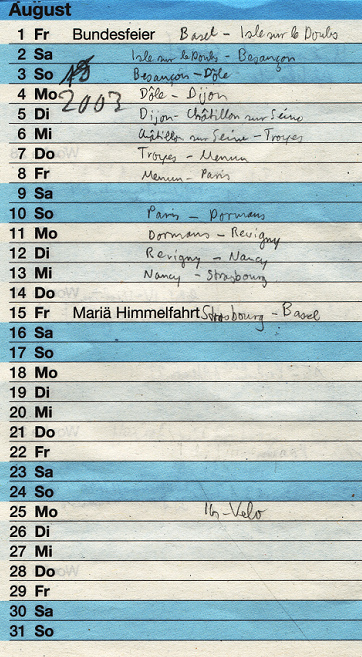 August
1 Fr Bundesfeier Basel - Isle sur le Doubs
2 Sa Isle sur le Doubs - Besançon
3 So Besançon - Dôle
4 Mo 2003 Dôle - Dijon
5 Di Dijon - Châtillon sur Seine
6 Mi Châtillon sur Seine - Troyes
7 Do Troyes -
8 Fr - Paris
9 Sa
10 So Paris - Dormans
11 Mo Dormans - Revigny
12 Di Revigny - Nancy
13 Mi Nancy - Strasbourg
14 Do
15 Fr Mariä Himmelfahrt Strasbourg - Basel
16 Sa
17 So
18 Mo
19 Di
20 Mi
21 Do
22 Fr
23 Sa
24 So
25 Mo - Velo
26 Di
27 Mi
28 Do
29 Fr
30 Sa
31 So